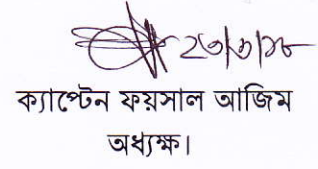 ২৩/৩/১৮
ক্যাপ্টেন ফয়সাল আজিম
অধ্যক্ষ।